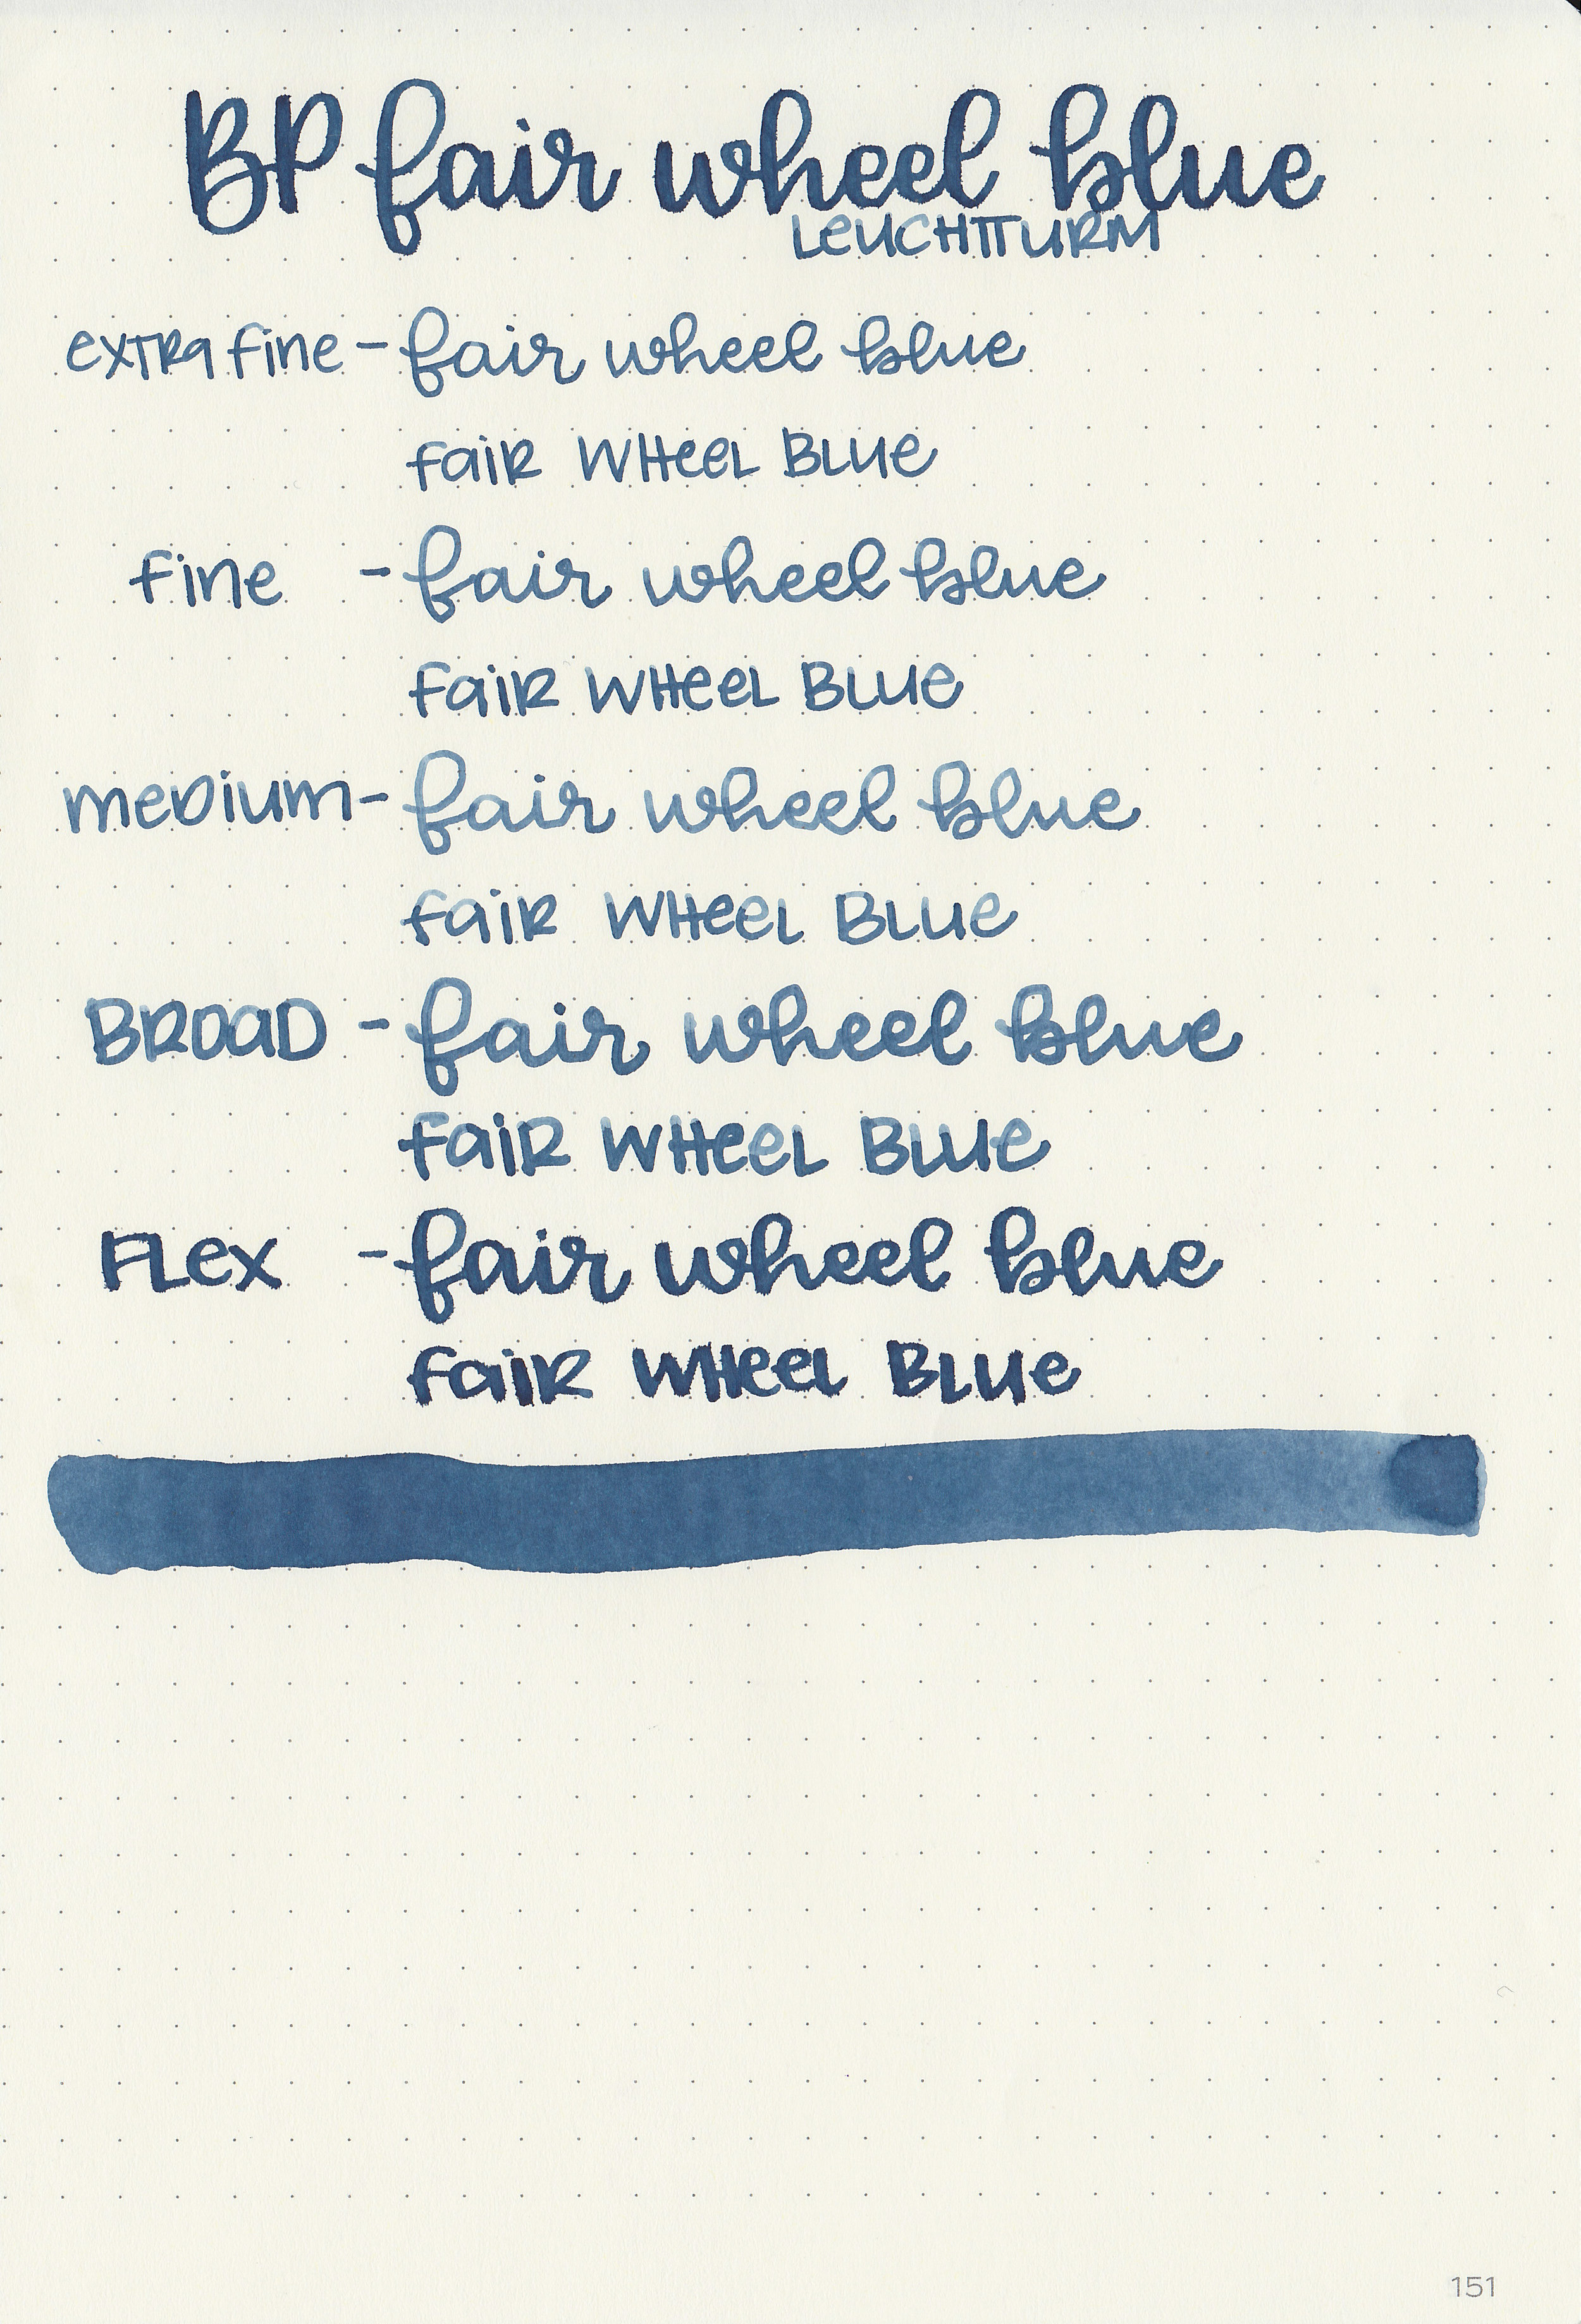 BP fair wheel blue
LEUCHTTURM
extra fine - fair wheel blue
FAIR WHEEL BLUE
fine - fair wheel blue
FAIR WHEEL BLUE
medium - fair wheel blue
FAIR WHEEL BLUE
BROAD - fair wheel blue
FAIR WHEEL BLUE
FLEX - fair wheel blue
FAIR WHEEL BLUE
151